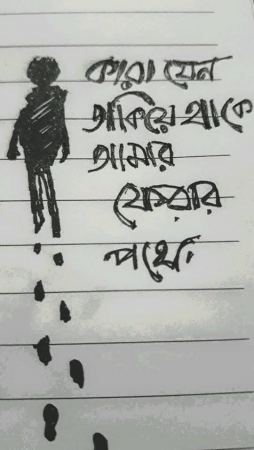 কারা যেন
তাকিয়ে থাকে
আমার
ফেরার
পথে।